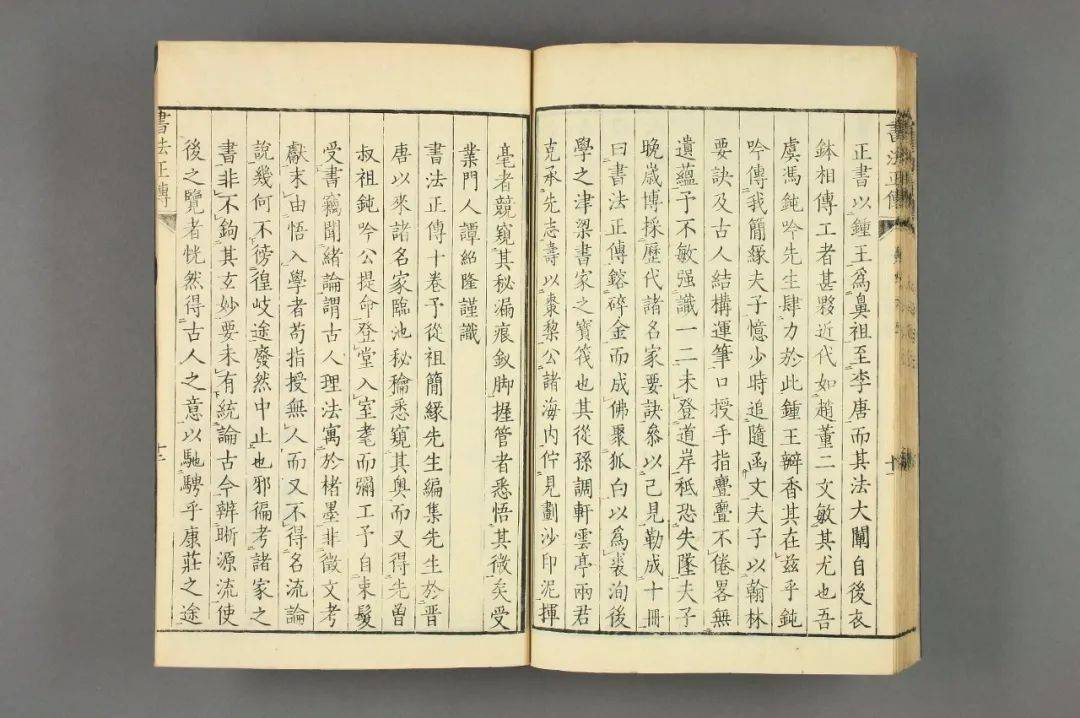 書法正傳
正書以鍾王爲鼻祖至李唐而其法大闡自後衣
鉢相傳工者甚夥近代如趙董二文敏其尤也吾
虞馮鈍吟先生肆力於此鍾王瓣香其在茲乎鈍
吟傳我簡緣夫子憶少時追隨函丈夫子以翰林
要訣及古人結構運筆口授手指亹亹不倦畧無
遺蘊予不敏强識一二未登道岸秪恐失墜夫子
晚歲博採歷代諸名家要訣叅以己見勒成十冊
曰書法正傳鎔碎金而成佛聚狐白以爲裘洵後
學之津梁書家之寶筏也其從孫調軒雲亭兩君
克承先志壽以棗棃公諸海内佇見劃沙印泥揮
十一
毫者競窺其秘漏痕釵脚握管者悉悟其微矣受
業門人譚紹隆謹識
書法正傳十卷予從祖簡緣先生編集先生於晋
唐以來諸名家臨池秘䆅悉窺其奥而又得先曾
叔祖鈍吟公提命登堂入室耄而彌工予自束髮
受書竊聞緒論謂古人理法寓於楮墨非徵文考
獻末由悟入學者苟指授無人而又不得名流論
說幾何不徬徨岐途廢然中止也邪徧考諸家之
書非不鈎其玄妙要未有統論古今辨晰源流使
後之覽者恍然得古人之意以馳騁乎康莊之途
書法正傳
十二